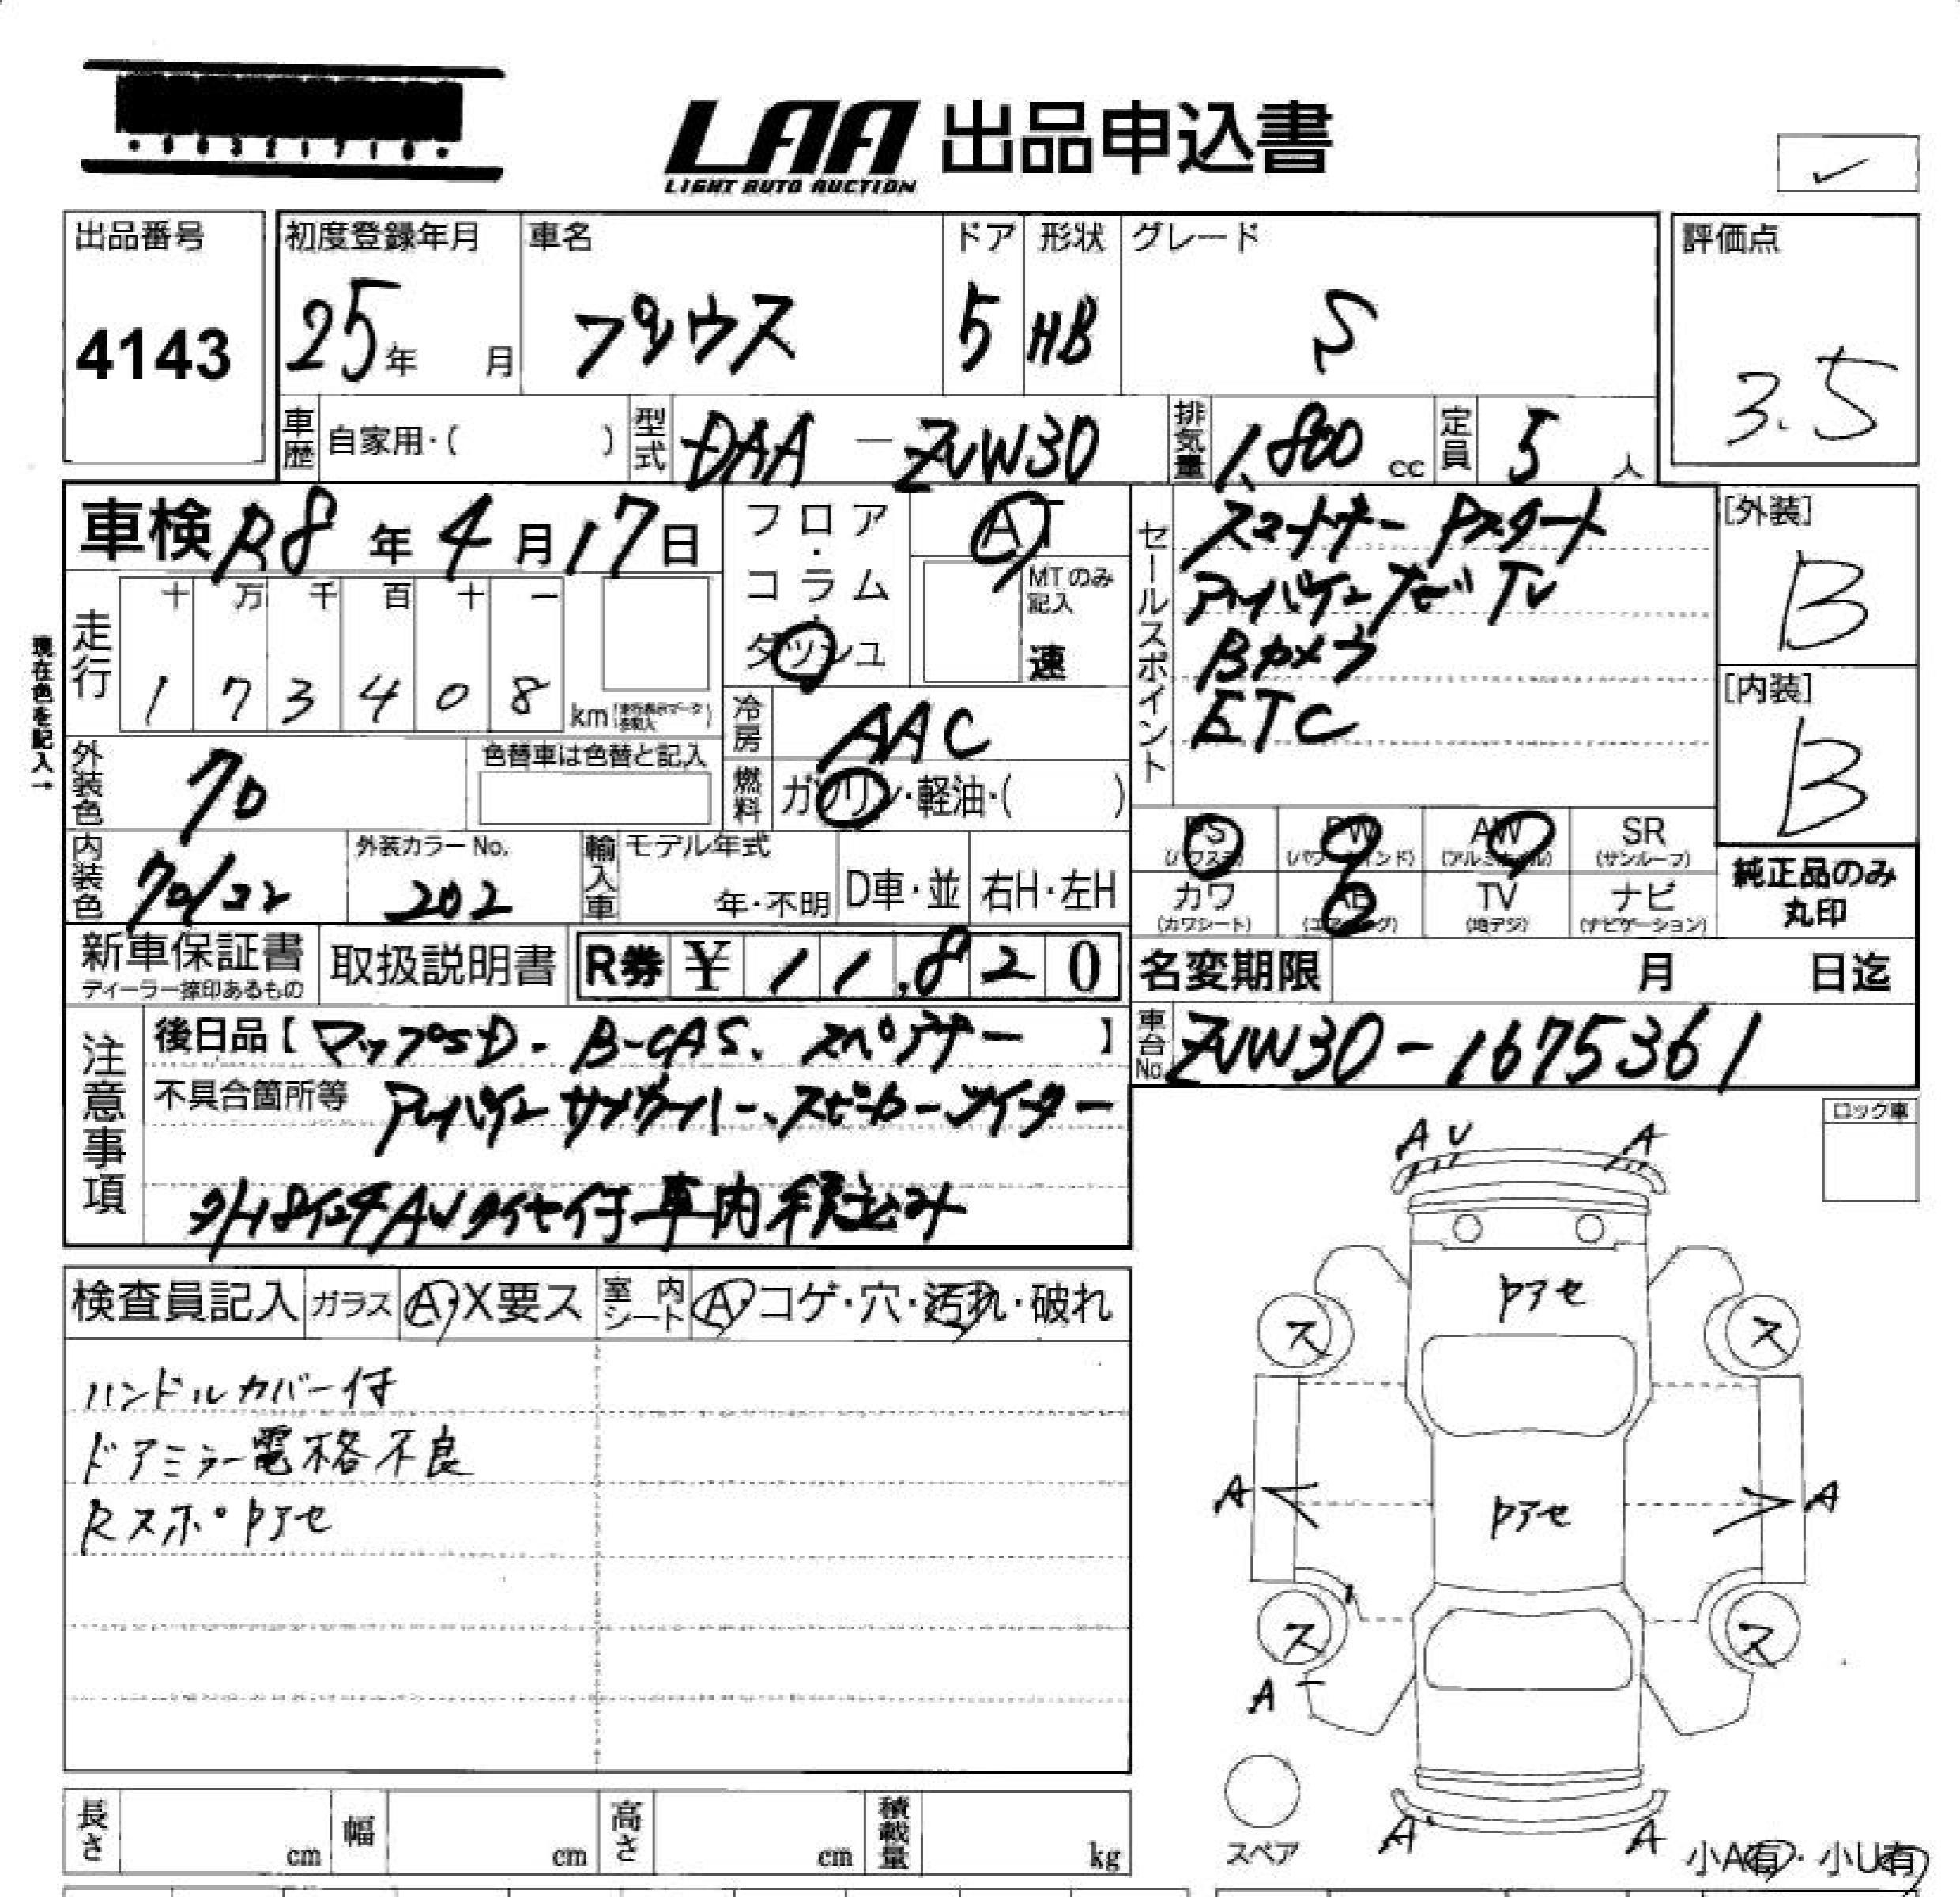 LAA 出品申込書
LIGHT AUTO AUCTION
出品番号
4143
初度登録年月
25年 月
車名
プリウス
ドア
5
形状
HB
グレード
S
評価点
3.5
車歴 自家用・( )
型式 DAA - ZVW30
排気量 1,800 cc
定員 5 人
車検 R8年 4月 17日
フロア・コラム・ダッシュ
AT
MTのみ記入
速
セールスポイント
スマートキー Pスタート
アルパインナビ TV
Bカメラ
ETC
[外装]
B
[内装]
B
現在色を記入→
走行
十 万 千 百 十 一
1 7 3 4 0 8 km
冷房 AAC
外装色 クロ
色替車は色替と記入
燃料 ガソリン・軽油・( )
内装色 クロ/コン
外装カラーNo.
202
輸入車
モデル年式
年・不明
D車・並
右H・左H
PS (パワステ)
PW (パワーウインド)
AW (アルミホイル)
SR (サンルーフ)
カワ (カワシート)
AB (エアバッグ)
TV (地デジ)
ナビ (ナビゲーション)
純正品のみ丸印
新車保証書
ディーラー捺印あるもの
取扱説明書
R券 ¥ 11,820
名変期限 月 日迄
注意事項
後日品【マップSD. B-CAS. スペアキー】
車台No. ZVW30-1675361
不具合箇所等 アルパイン スピーカー ツイーター
AW タイヤ付 車内積込み
ロック車
検査員記入
ガラス A・X要ス
室内シート A・コゲ・穴・汚れ・破れ
ハンドルカバー付
ドアミラー電格不良
Rスポ トアセ
A U A
トアセ
ス ス
A A
トアセ
ス ス
A
スペア
A A
小A有・小U有
長さ cm
幅 cm
高さ cm
積載量 kg